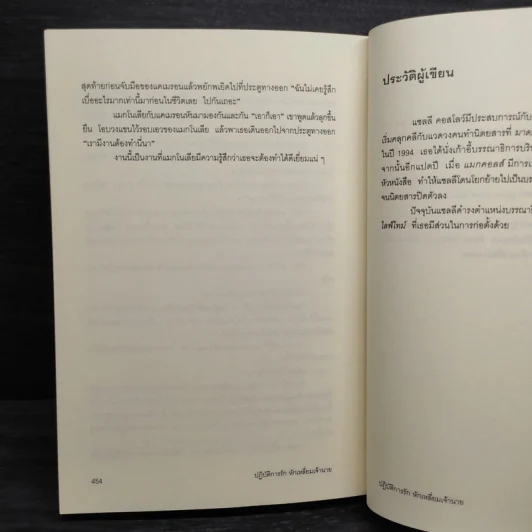 สุดท้ายก่อนจับมือของแคเมรอนแล้วพยักพเยิดไปที่ประตูทางออก "ฉันไม่เคยรู้สึก
เบื่ออะไรมากเท่านี้มาก่อนในชีวิตเลย ไปกันเถอะ"
แมกโนเลียกับแคเมรอนหันมามองกันและกัน "เอาก็เอา" เขาพูดแล้วลุกขึ้น
ยืน โอบวงแขนไว้รอบเอวของแมกโนเลีย แล้วพาเธอเดินออกไปจากประตูทางออก
"เรามีงานต้องทำนี่นา"
งานนี้เป็นงานที่แมกโนเลียมีความรู้สึกว่าเธอจะต้องทำได้ดีเยี่ยมแน่ ๆ
454
ปฏิบัติการรัก หักเหลี่ยมเจ้านาย
ประวัติผู้เขียน
แซลลี คอสโลว์มีประสบการณ์กับ
เริ่มคลุกคลีกับแวดวงคนทำนิตยสารที่
ในปี 1994 เธอได้นั่งเก้าอี้บรรณาธิการบริ
จากนั้นอีกแปดปี เมื่อ แมกคอลส์ มีการเ
หัวหนังสือ ทำให้แซลลีโดนโยกย้ายไปเป็นบร
จนนิตยสารปิดตัวลง
ปัจจุบันแซลลีดำรงตำแหน่งบรรณาธิ
ไลฟ์ไทม์ ที่เธอมีส่วนในการก่อตั้งด้วย
ปฏิบัติการรัก หักเหลี่ยมเจ้านาย